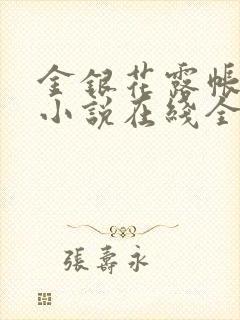 金銀花露帳
小説在綫全
張壽永